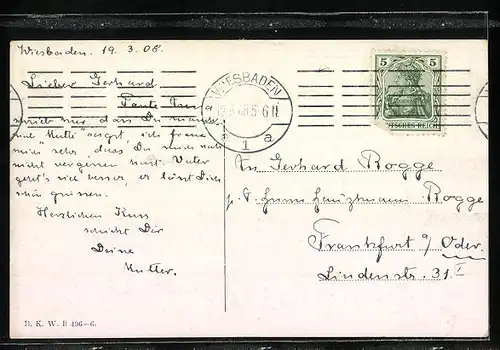 Wiesbaden. 19. 3. 08.
Lieber Gerhard
Tante
schrieb mir dass Du
"Mutti" sagst ich freue
mich sehr, dass Du mich noch
nicht vergessen hast. Vater
geht's viel besser, er lässt Dich
schön grüssen.
Herzlichen Kuss
schickt Dir
Deine
Mutter.
WIESBADEN
5-6N
1 a
5 5
DEUTSCHES REICH
An Gerhard Rogge
Rogge
Frankfurt a/ Oder.
Lindenstr. 31 I
B. K. W. I. 496-6.